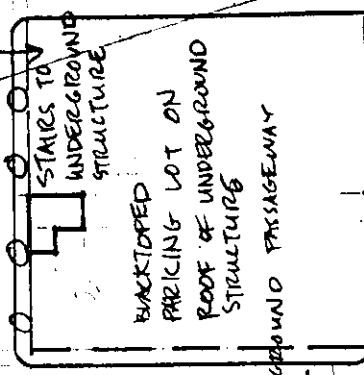 STAIRS TO
UNDERGROUND
STRUCTURE
BLACKTOPED
PARKING LOT ON
ROOF OF UNDERGROUND
STRUCTURE
GROUND PASSAGEWAY